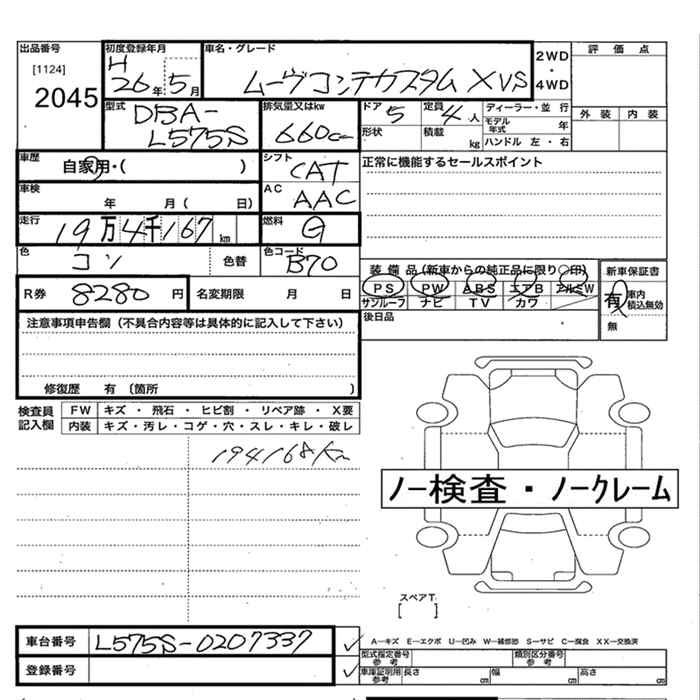 出品番号 初度登録年月 車名・グレード 2WD・4WD 評価点
[1124]
2045
H 26年 5月 ムーヴコンテカスタム X VS
外装 内装
型式 DBA-L575S
排気量又はkw 660cc
ドア 5 定員 4人 ディーラー・並行
形状 積載 kg モデル年式 年
ハンドル 左・右
車歴 自家用・( )
シフト CAT
正常に機能するセールスポイント
車検 年 月( 日)
AC AAC
走行 19万4千167km
燃料 G
色 コン 色替
色コード B70
装備品(新車からの純正品に限り○印)
PS PW ABS エアB アルミW
サンルーフ ナビ TV カワ
新車保証書
有 車内積込無効
無
R券 8280円 名変期限 月 日
後日品
注意事項申告欄(不具合内容等は具体的に記入して下さい)
修復歴 有 〔箇所 〕
検査員記入欄
FW キズ・飛石・ヒビ割・リペア跡・X要
内装 キズ・汚レ・コゲ・穴・スレ・キレ・破レ
194168km
ノー検査・ノークレーム
スペアT
[ ]
車台番号 L575S-0207337
登録番号
A-キズ E-エクボ U-凹み W-補修跡 S-サビ C-腐食 XX-交換済
型式指定番号 参考 類別区分番号 参考
車庫証明用 参考 長さ cm 幅 cm 高さ cm